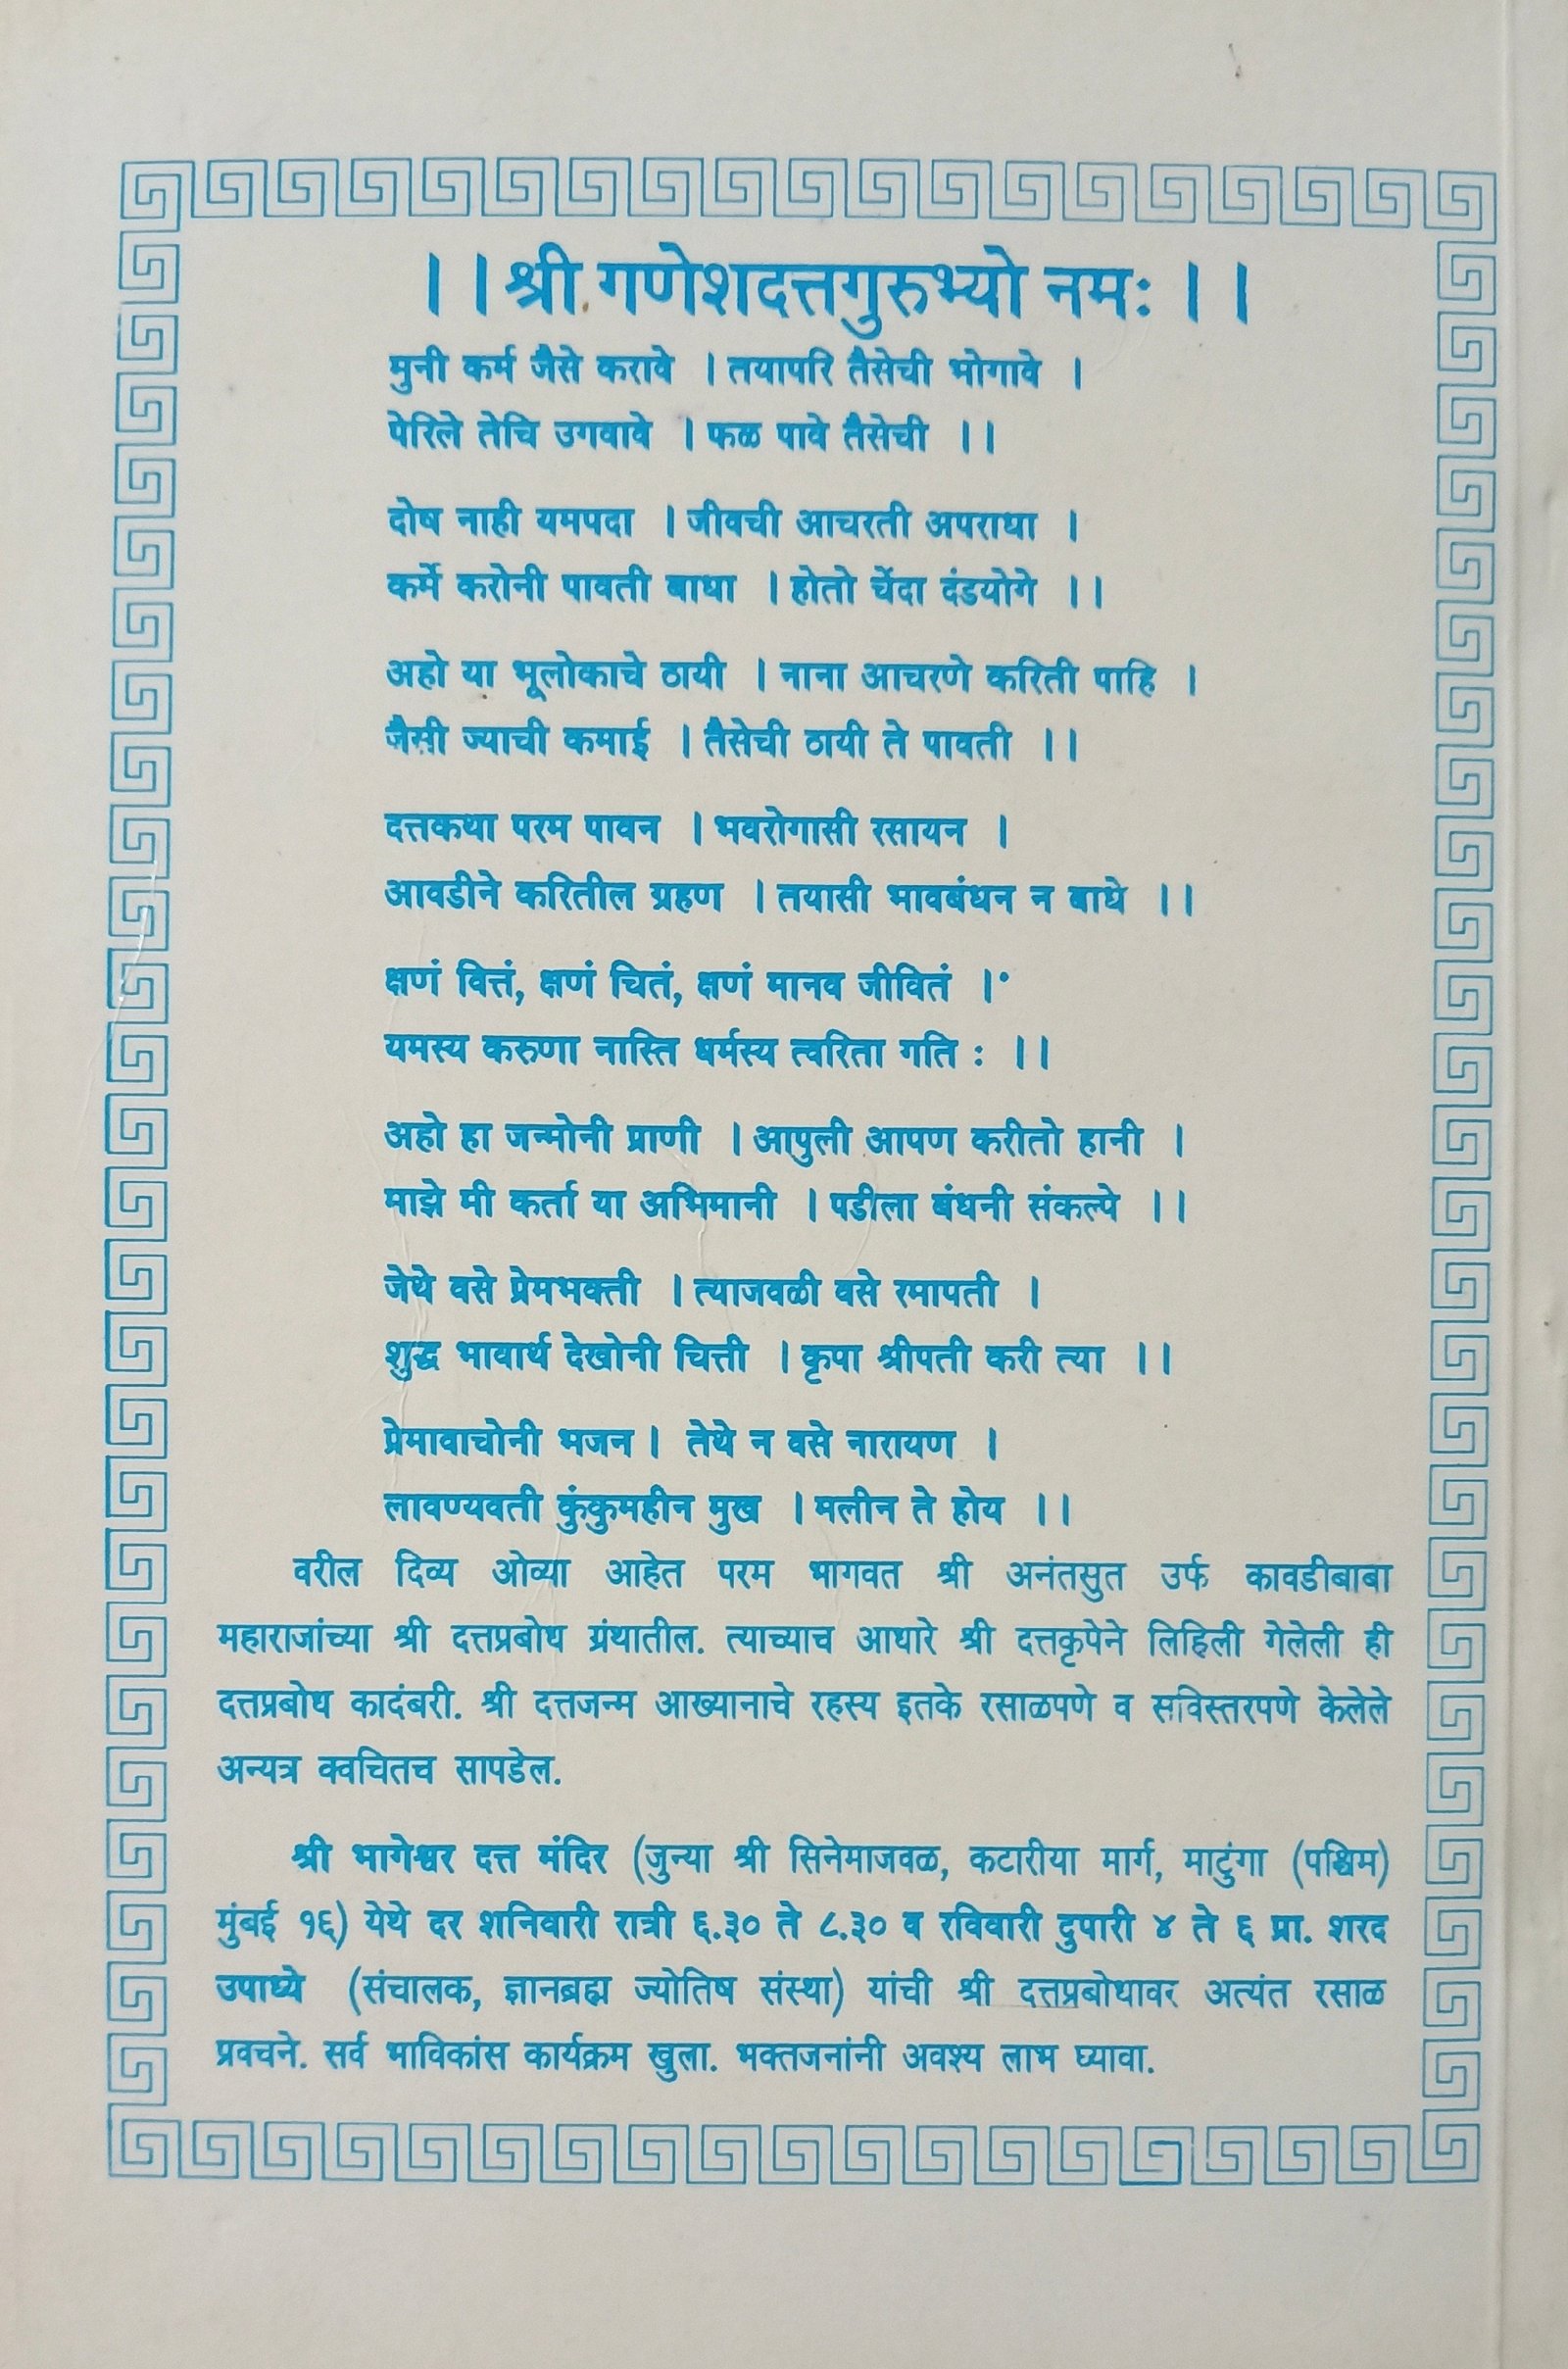 ।।श्री गणेशदत्तगुरुभ्यो नमः।।
मुनी कर्म जैसे करावे । तयापरि तैसेची भोगावे ।
पेरिले तेचि उगवावे । फळ पावे तैसेची ।।
दोष नाही यमपदा । जीवची आचरती अपराधा ।
कर्मे करोनी पावती बाधा । होतो चेंदा दंडयोगे ।।
अहो या भूलोकाचे ठायी । नाना आचरणे करिती पाहि ।
जैसी ज्याची कमाई । तैसेची ठायी ते पावती ।।
दत्तकथा परम पावन । भवरोगासी रसायन ।
आवडीने करितील ग्रहण । तयासी भावबंधन न बाधे ।।
क्षणं वित्तं, क्षणं चितं, क्षणं मानव जीवितं ।
यमस्य करुणा नास्ति धर्मस्य त्वरिता गति : ।।
अहो हा जन्मोनी प्राणी । आपुली आपण करीतो हानी ।
माझे मी कर्ता या अभिमानी । पडीला बंधनी संकल्पे ।।
जेथे वसे प्रेमभक्ती । त्याजवळी वसे रमापती ।
शुद्ध भावार्थ देखोनी चित्ती । कृपा श्रीपती करी त्या ।।
प्रेमावाचोनी भजन । तेथे न वसे नारायण ।
लावण्यवती कुंकुमहीन मुख । मलीन ते होय ।।
वरील दिव्य ओव्या आहेत परम भागवत श्री अनंतसुत उर्फ कावडीबाबा
महाराजांच्या श्री दत्तप्रबोध ग्रंथातील. त्याच्याच आधारे श्री दत्तकृपेने लिहिली गेलेली ही
दत्तप्रबोध कादंबरी. श्री दत्तजन्म आख्यानाचे रहस्य इतके रसाळपणे व सविस्तरपणे केलेले
अन्यत्र क्वचितच सापडेल.
श्री भागेश्वर दत्त मंदिर (जुन्या श्री सिनेमाजवळ, कटारीया मार्ग, माटुंगा (पश्चिम)
मुंबई १६) येथे दर शनिवारी रात्री ६.३० ते ८.३० व रविवारी दुपारी ४ ते ६ प्रा. शरद
उपाध्ये (संचालक, ज्ञानब्रह्म ज्योतिष संस्था) यांची श्री दत्तप्रबोधावर अत्यंत रसाळ
प्रवचने. सर्व भाविकांस कार्यक्रम खुला. भक्तजनांनी अवश्य लाभ घ्यावा.